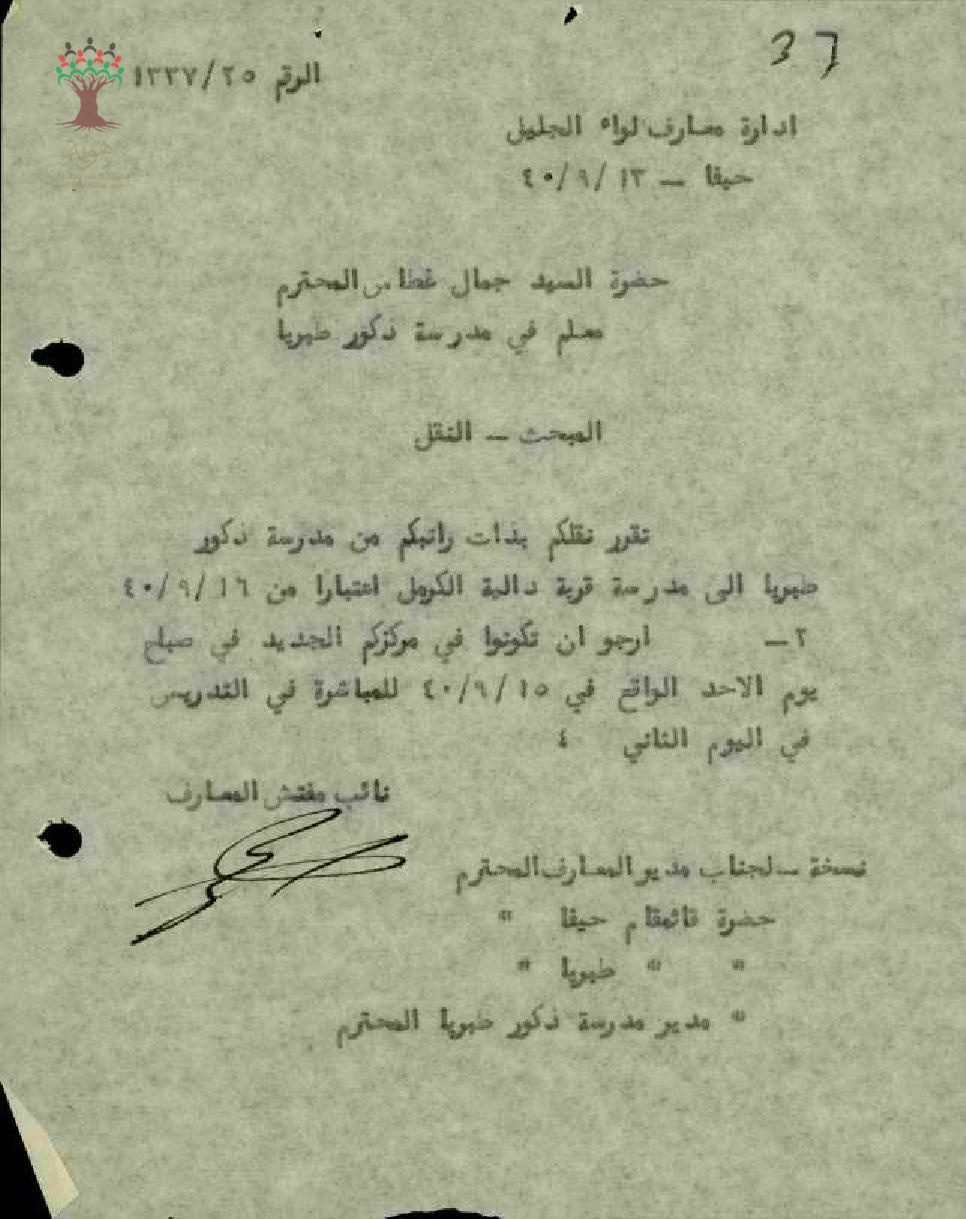 37
الرقم ١٣٣٧/٢٥
ادارة معارف لواء الجليل
حيفا — ١٣ /٩ /٤٠
حضرة السيد جمال غطاس المحترم
معلم في مدرسة ذكور طبريا
المبحث — النقل
تقرر نقلكم بذات راتبكم من مدرسة ذكور
طبريا الى مدرسة قرية دالية الكرمل اعتبارا من ١٦ /٩ /٤٠
٢— ارجو ان تكونوا في مركزكم الجديد في صباح
يوم الاحد الواقع في ١٥ /٩ /٤٠ للمباشرة في التدريس
في اليوم الثاني ٤
نائب مفتش المعارف
نسخة — لجناب مدير المعارف المحترم
حضرة قائمقام حيفا "
" " طبريا "
" مدير مدرسة ذكور طبريا المحترم